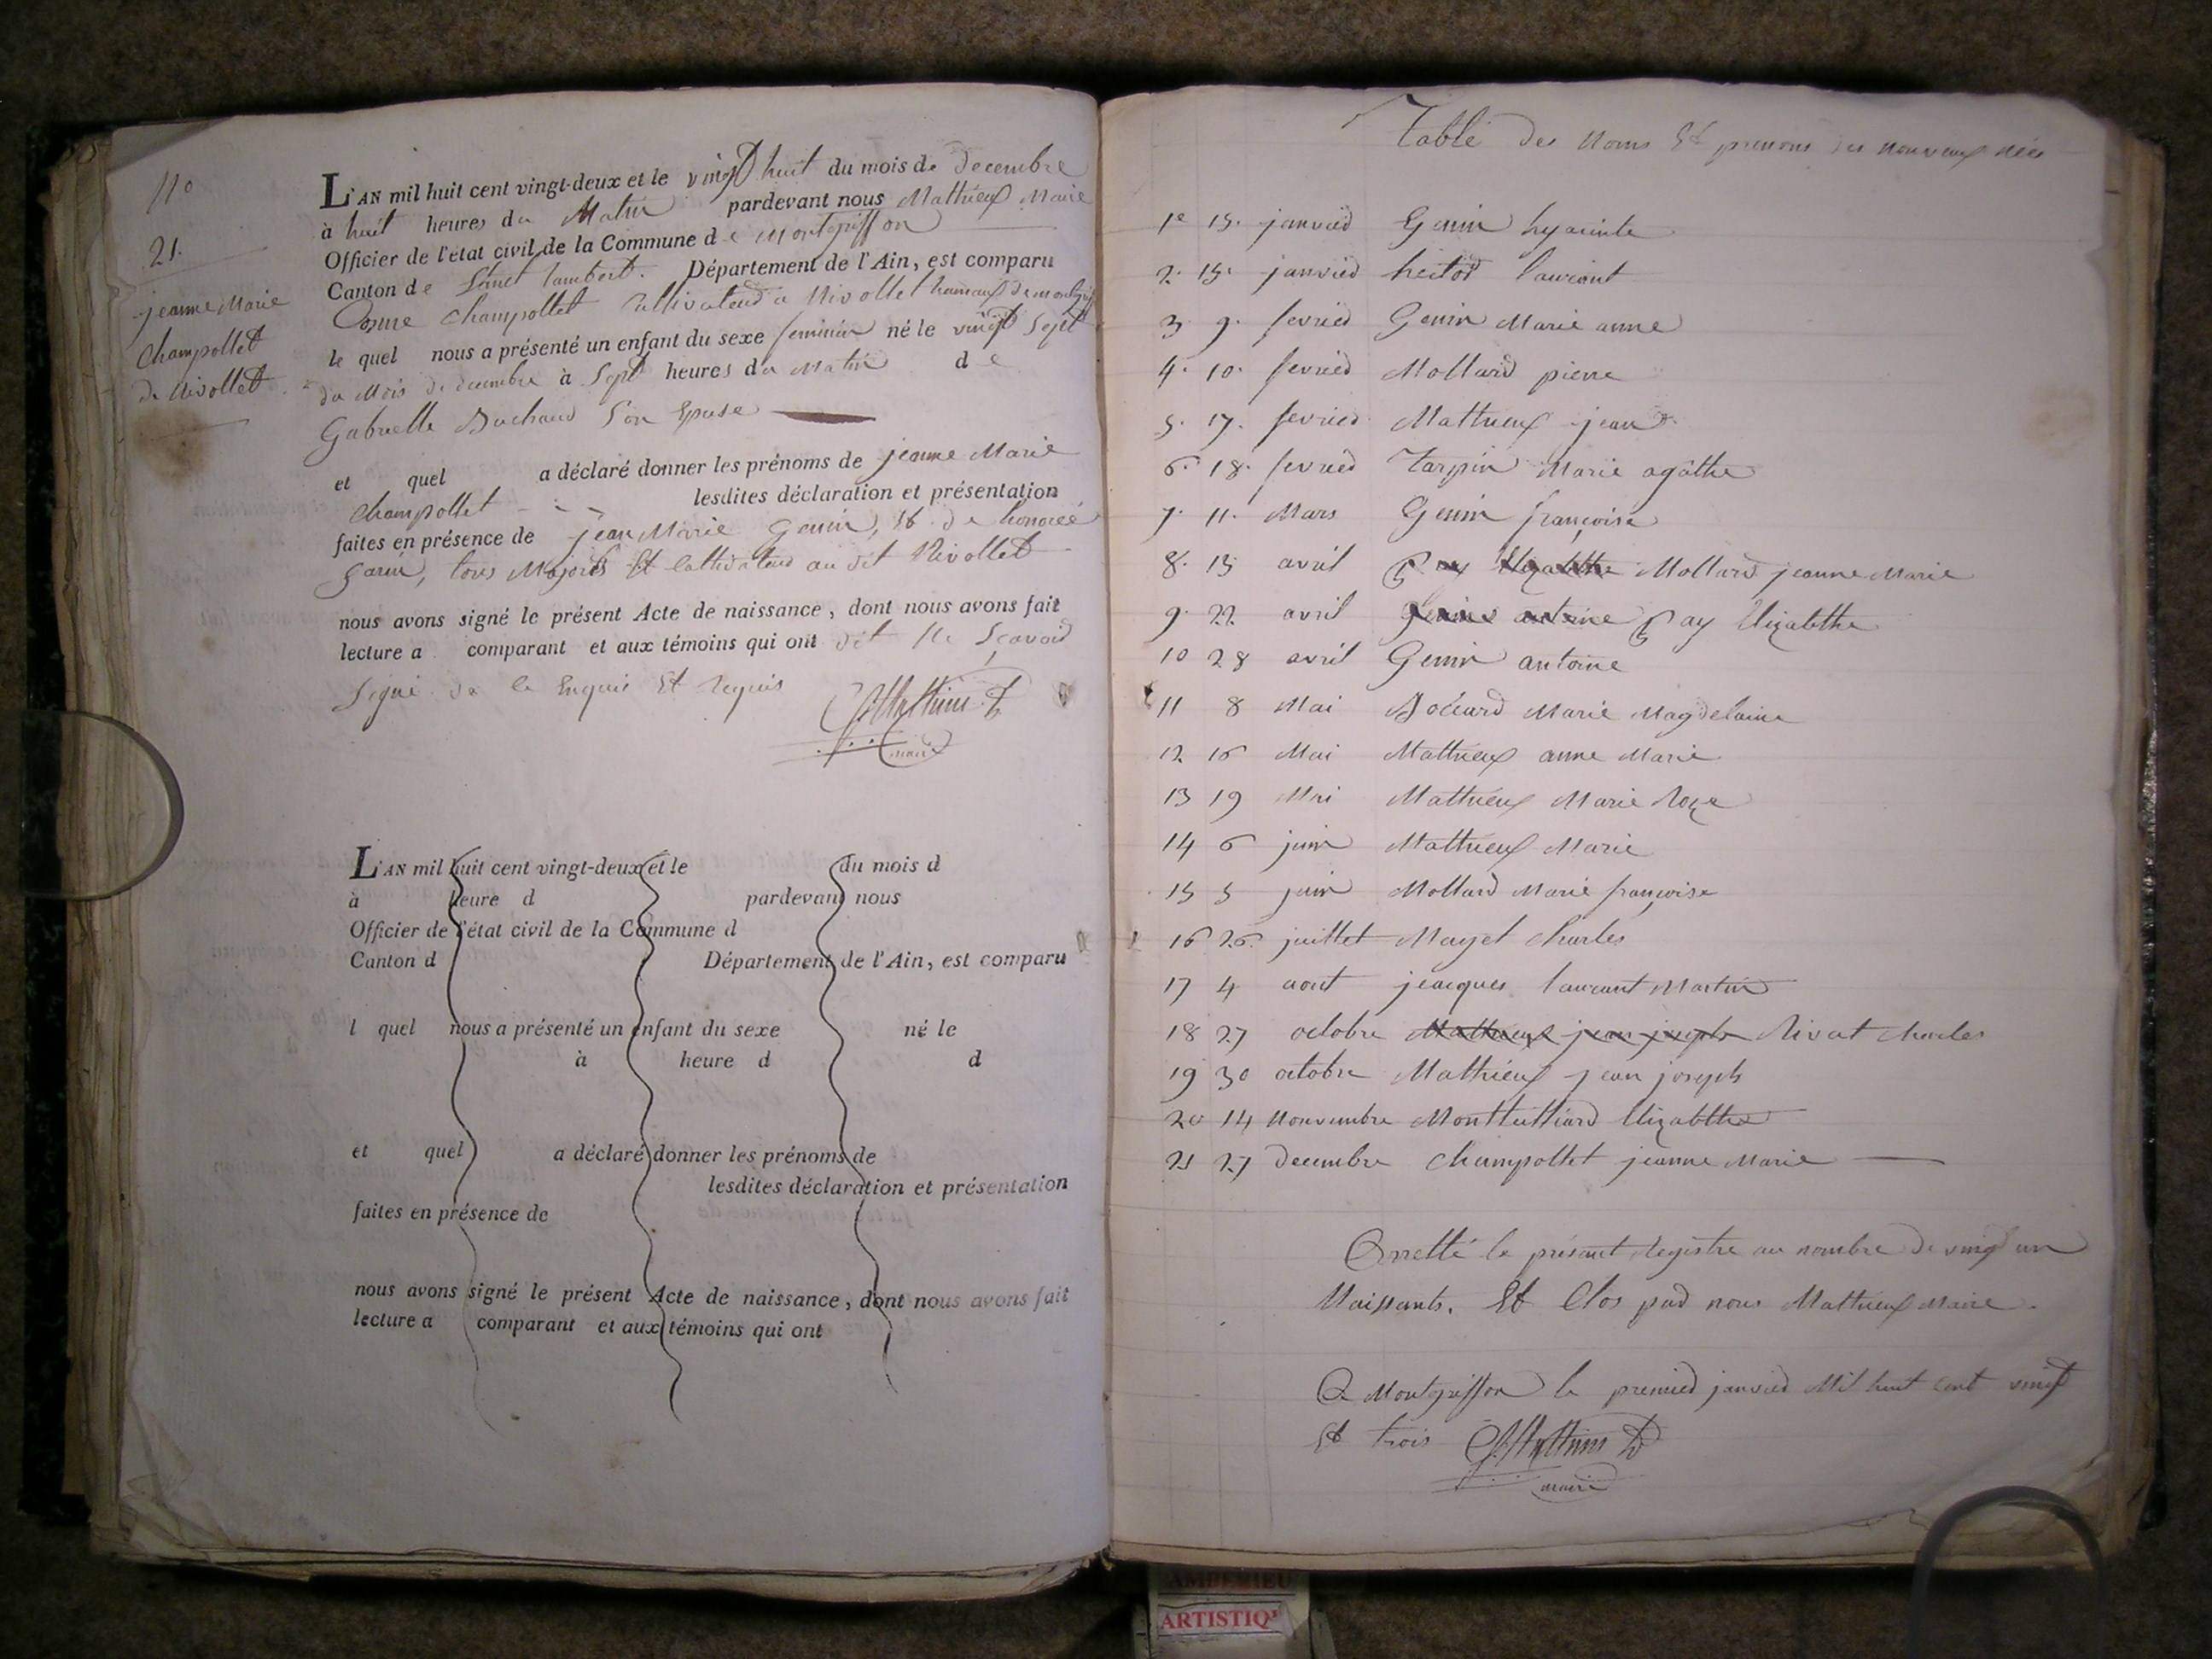 No
21.
jeanne Marie
Champollet
de Nivollet
L'AN mil huit cent vingt-deux et le vingt huit du mois de decembre
à huit heures du Matin pardevant nous Mathieux Maire
Officier de l'état civil de la Commune de Montgriffon
Canton de Saint lambert. Département de l'Ain, est comparu
Champollet Cultivateur a Nivollet hameaux de
le quel nous a présenté un enfant du sexe feminin né le vingt Sept
du Mois de decembre à Sept heures du Matin de
Gabrielle Buchard Son Epuse
et quel a déclaré donner les prénoms de jeanne Marie
Champollet lesdites déclaration et présentation
faites en présence de jean Marie Genin, Et de honoré
garin, tous Majors Et Cultivateur au dit Nivollet
nous avons signé le présent Acte de naissance, dont nous avons fait
lecture a comparant et aux témoins qui ont dit Ne Scavoir
Signé de le Enquis Et requis
maire
L'AN mil huit cent vingt-deux et le du mois d
à heure d pardevant nous
Officier de l'état civil de la Commune d
Canton d Département de l'Ain, est comparu
l quel nous a présenté un enfant du sexe né le
à heure d d
et quel a déclaré donner les prénoms de
lesdites déclaration et présentation
faites en présence de
nous avons signé le présent Acte de naissance, dont nous avons fait
lecture a comparant et aux témoins qui ont
Table des Noms Et prenons des nouveaux nées
1e 15. janvied Genin hyacinte
2. 15. janvied hector laurent
3 9. fevried Genin Marie anne
4. 10. fevried Mollard pierre
5. 17. fevried Mathieux jean
6. 18. fevried Tarpin Marie agathe
7. 11. Mars Genin françoise
8. 15 avril Ray Elizabethe Mollard jeanne Marie
9. 22 avril Genin antoine Ray Elizabethe
10 28 avril Genin antoine
11 8 Mai Marie Magdelaine
12 16 Mai Mathieux anne Marie
13 19 Mai Mathieux Marie Roze
14 6 juin Mathieux Marie
15 5 juin Mollard Marie françoise
16 26 juillet Mayet Charles
17 4 aout jeacques laurent Martin
18 27 octobre Mathieux jean joseph Rivat Charles
19 30 octobre Mathieux jean joseph
20 14 Nouvembre Elizabethe
21 27 decembre Champollet jeanne Marie
Arretté le présent Registre au nombre de vingt un
Naissants. Et Clos pard nous Mathieux Maire.
A Montgriffon le premied janvied Mil huit cent vingt
Et trois
maire
AMBERIEU
ARTISTIQ'